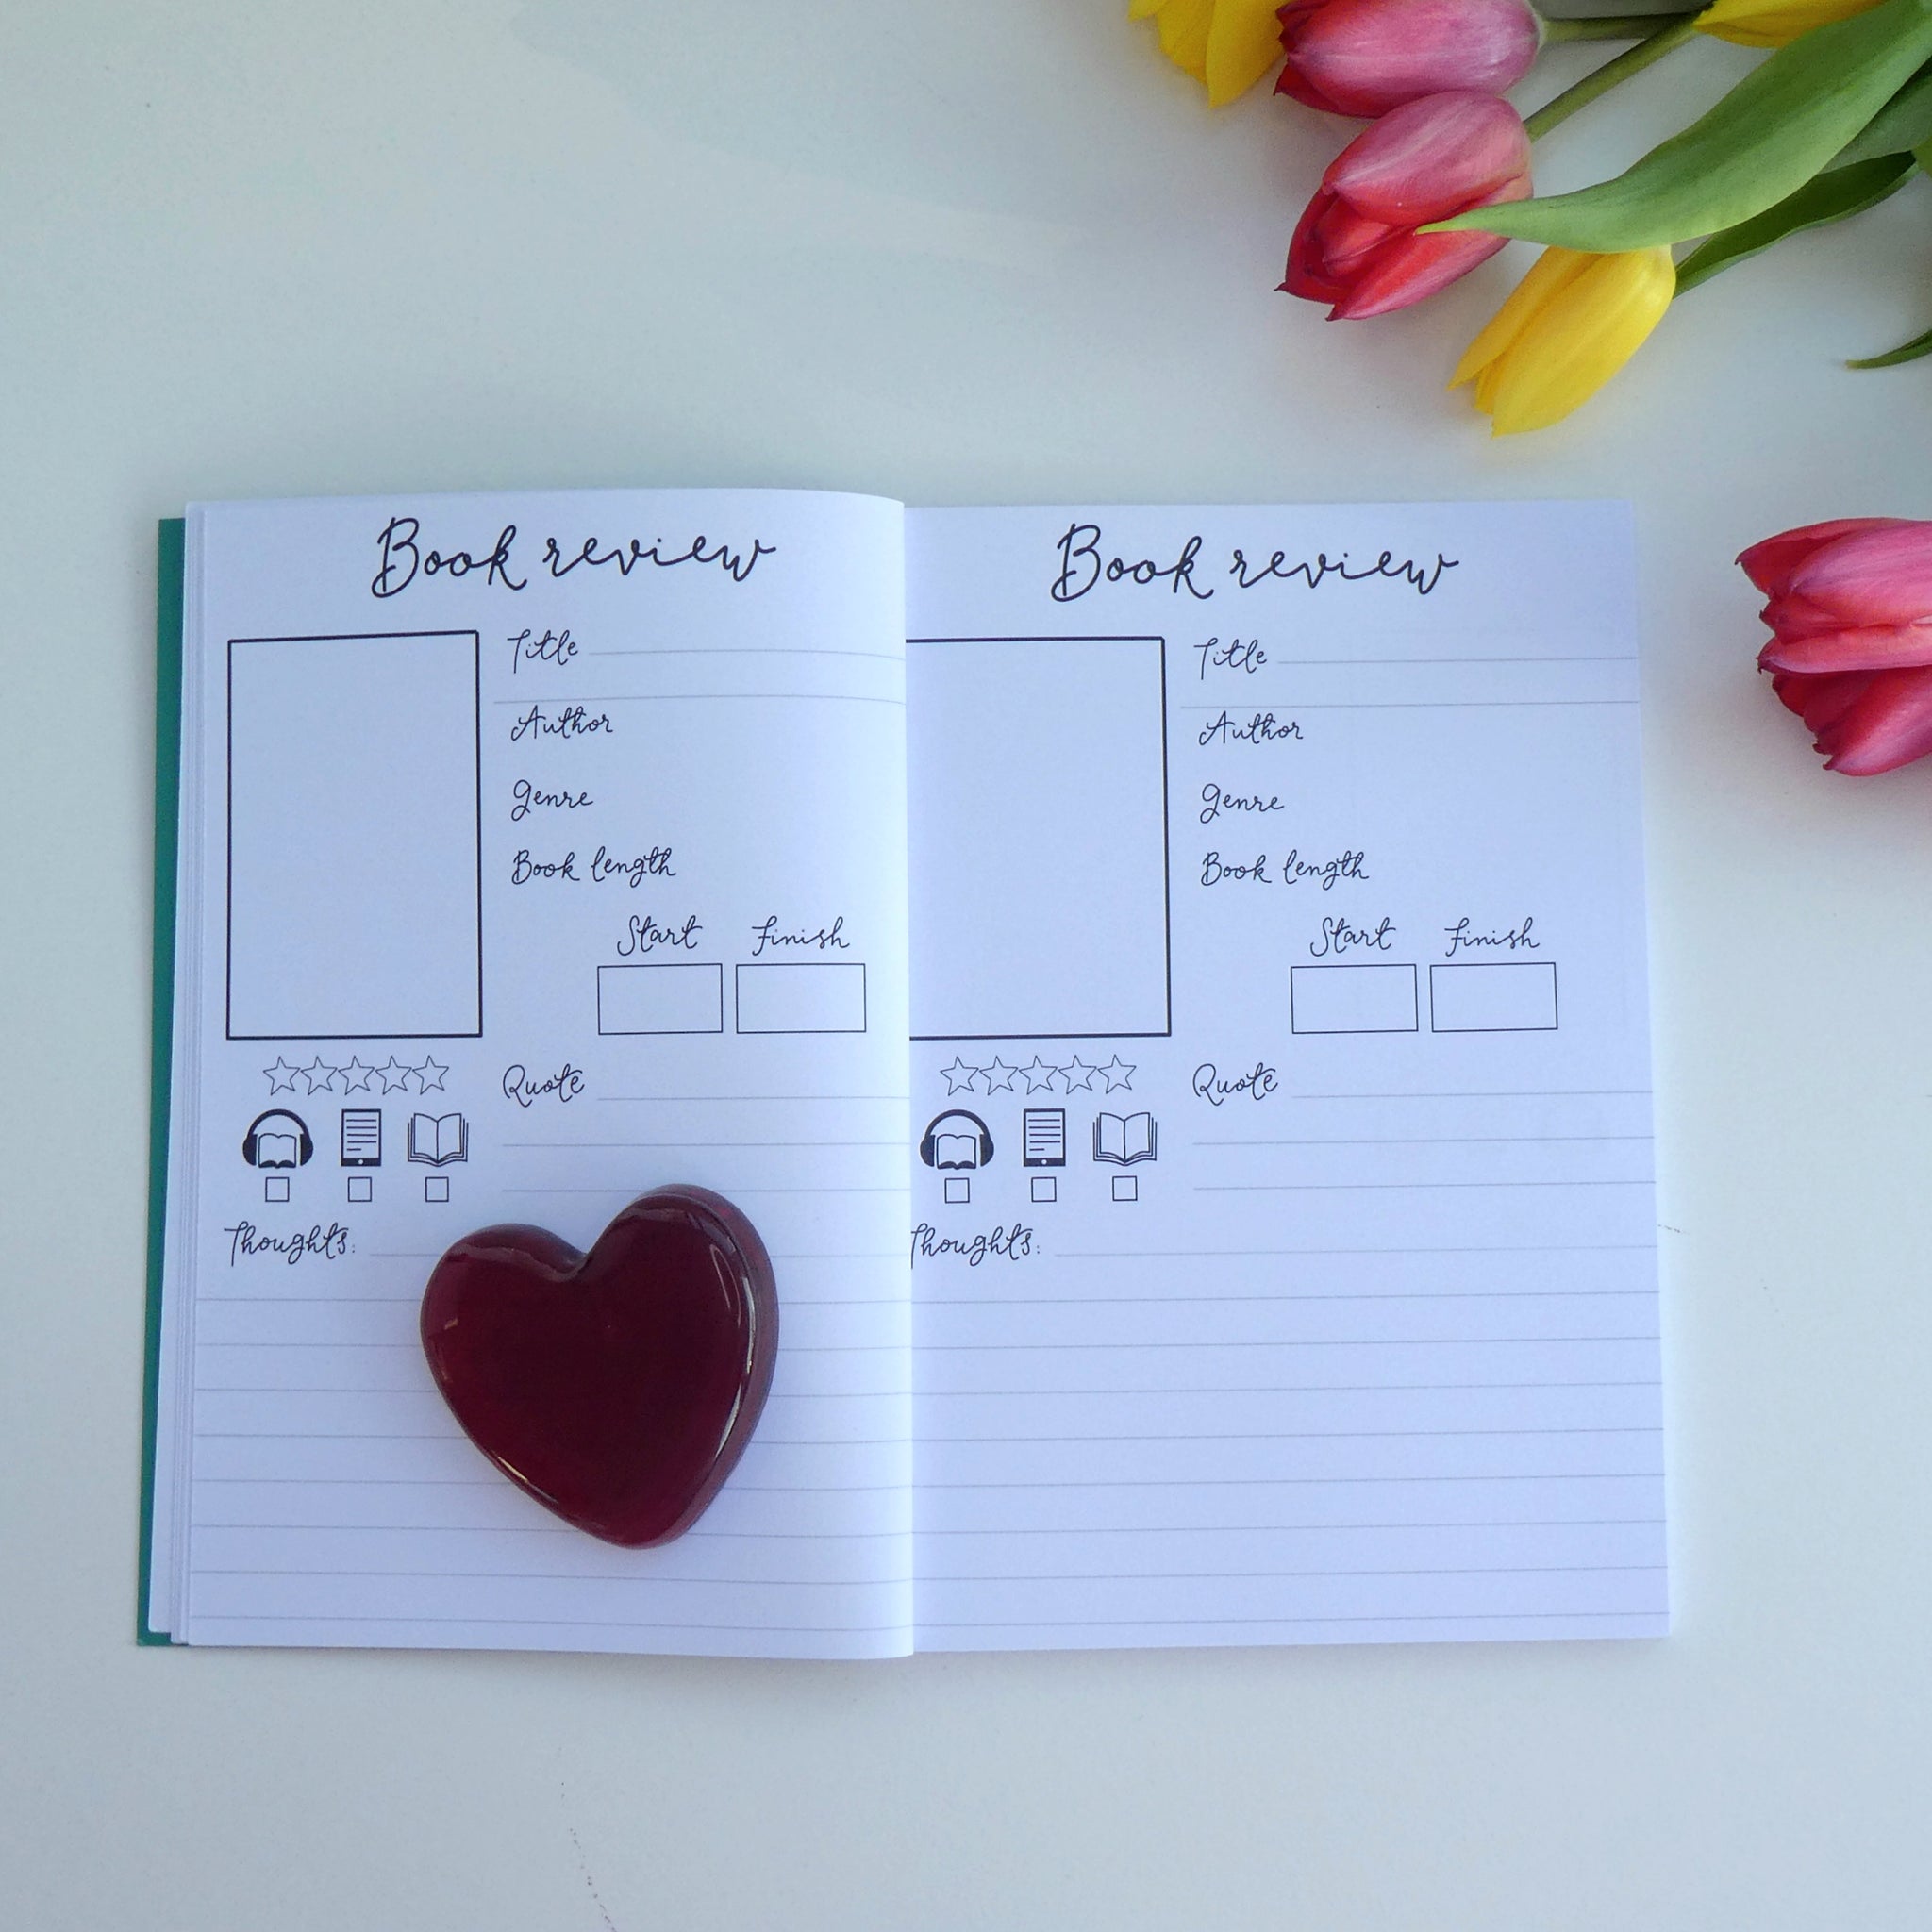 Book review
Title
Author
Genre
Book length
Start Finish
Quote
Thoughts:
Book review
Title
Author
Genre
Book length
Start Finish
Quote
Thoughts: